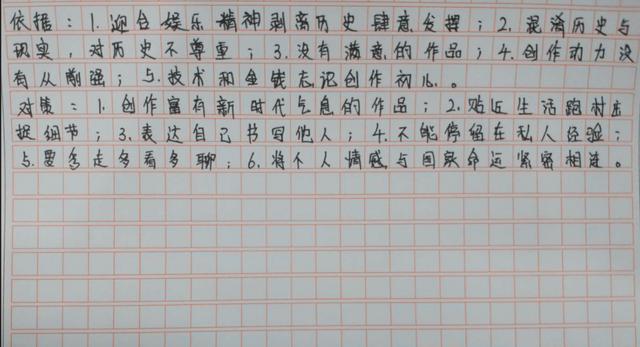 依据：1.迎合娱乐精神剥离历史肆意发挥；2.混淆历史与
现实，对历史不尊重；3.没有满意的作品；4.创作动力没
有从前强；5.技术和金钱忘记创作初心。
对策：1.创作富有新时代气息的作品；2.贴近生活跑村出
捉细节；3.表达自己书写他人；4.不能停留在私人经验；
5.要多走多看多聊；6.将个人情感与国家命运紧密相连。